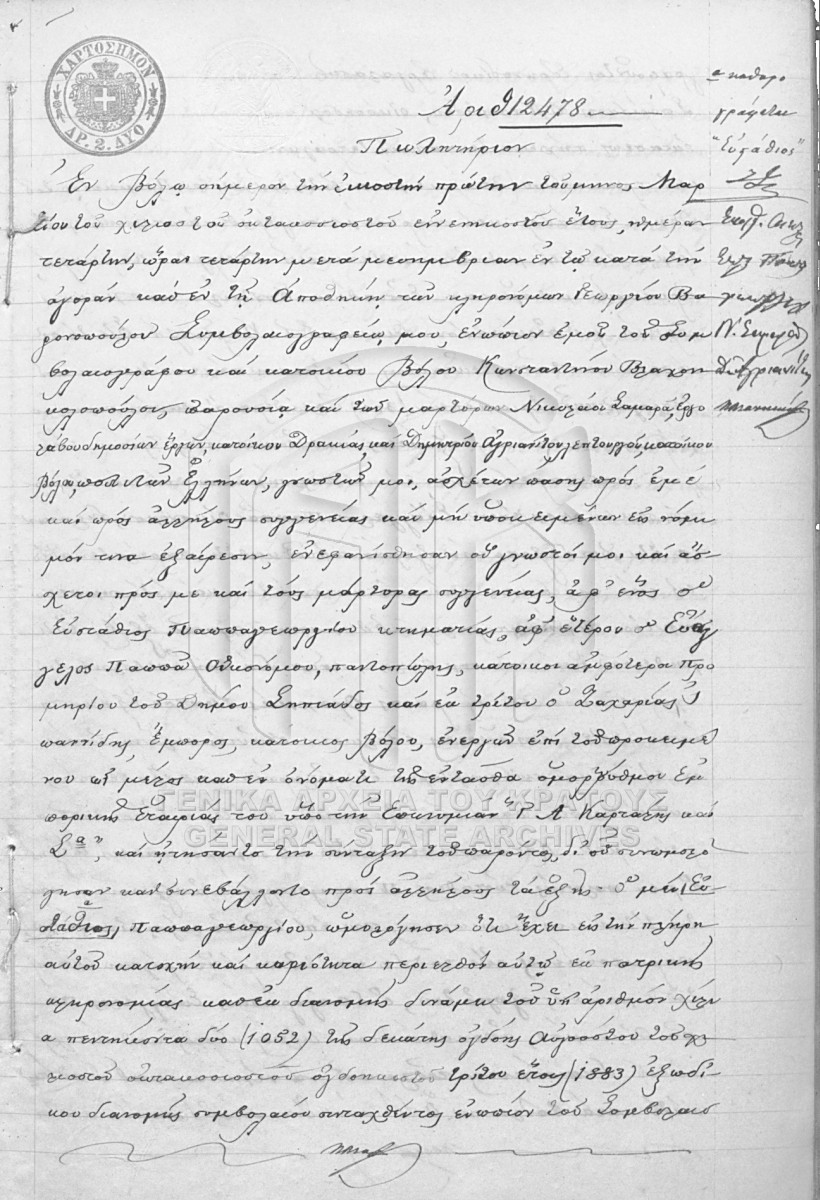 ΧΑΡΤΟΣΗΜΟΝ
ΔΡ. 2. ΔΥΟ
Ἀριθ 12478
Πωλητήριον
Ἐν Βόλῳ σήμερον τήν εἰκοστήν πρώτην τοῦ μηνός Μαρ
τίου τοῦ χιλιοστοῦ ὀκτακοσσιοστοῦ ἐννενηκοστοῦ ἔτους, ἡμέραν
τετάρτην, ὥραν τετάρτην μετά μεσημβρίαν ἐν τῷ κατά τήν
ἀγοράν καί ἐν τῇ Ἀποθήκῃ τῶν κληρονόμων Γεωργίου Βα
ρονοπούλου Συμβολαιογραφείῳ μου, ἐνώπιον ἐμοῦ τοῦ Συμ
βολαιογράφου καί κατοίκου Βόλου Κωνσταντίνου Βλαχον
κολοπούλου, παρουσίᾳ καί τῶν μαρτύρων Νικολάου Σαμαρᾶ, ἐργο
λάβου δημοσίων ἔργων, κατοίκου Δρακιάς, καί Δημητρίου Αγριανίτου λεπτουργοῦ, κατοίκου
Βόλου, πολιτῶν Ἑλλήνων, γνωστῶν μοι, ἀσχέτων πάσης πρός ἐμέ
καί πρός ἀλλήλους συγγενείας καί μή ὑποκειμένων εἰς νόμι
μόν τινα ἐξαίρεσιν, ἐνεφανίσθησαν οἱ γνωστοί μοι καί ἄσ
χετοι πρός με καί τούς μάρτυρας συγγενείας, ἀφ' ἑνός ὁ
Εὐστάθιος Παππαγεωργίου κτηματίας, ἀφ' ἑτέρου ὁ Εὐάγ
γελος Παππᾶ Οἰκονόμου, παντοπώλης, κάτοικοι ἀμφότεροι Προ
μηρίου τοῦ Δήμου Σηπιάδος καί ἐκ τρίτου ὁ Ζαχαρίας
ἔμπορος, κάτοικος Βόλου, ἐνεργῶν ἐπί τοῦ προκειμέ
νου ὡς μέλος καί ἐν ὀνόματι τῆς ἐνταῦθα ὁμορρύθμου Ἐμ
πορικῆς Ἑταιρίας τοῦ ὑπό τήν Ἐπωνυμίαν "Γ Λ Καρτάλης καί
Σα", καί ᾐτήσαντο τήν σύνταξιν τοῦ παρόντος, δι' οὗ συνωμολό
γησαν καί συνεβάλλοντο πρός ἀλλήλους τά ἑξῆς. Ὁ μέν (Εὐ
στάθιος) Παππαγεωργίου, ὡμολόγησεν ὅτι ἔχει εἰς τήν πλήρη
αὐτοῦ κατοχήν καί κυριότητα περιελθόν αὐτῷ ἐκ πατρικῆς
κληρονομίας καί ἐκ διανομῆς δυνάμει τοῦ ὑπ' ἀριθμόν χίλι
α πεντήκοντα δύο (1052) τῆς δεκάτης ὀγδόης Αὐγούστου τοῦ χι
λιοστοῦ ὀκτακοσιοστοῦ ὀγδοηκοστοῦ τρίτου ἔτους (1883) ἐξωδί
κου διανομῆς συμβολαίου συνταχθέντος ἐνώπιόν τοῦ Συμβολαιο
α καθαρο
γράφεται
"Εὐστάθιος"
ΓΕΝΙΚΑ ΑΡΧΕΙΑ ΤΟΥ ΚΡΑΤΟΥΣ
GENERAL STATE ARCHIVES